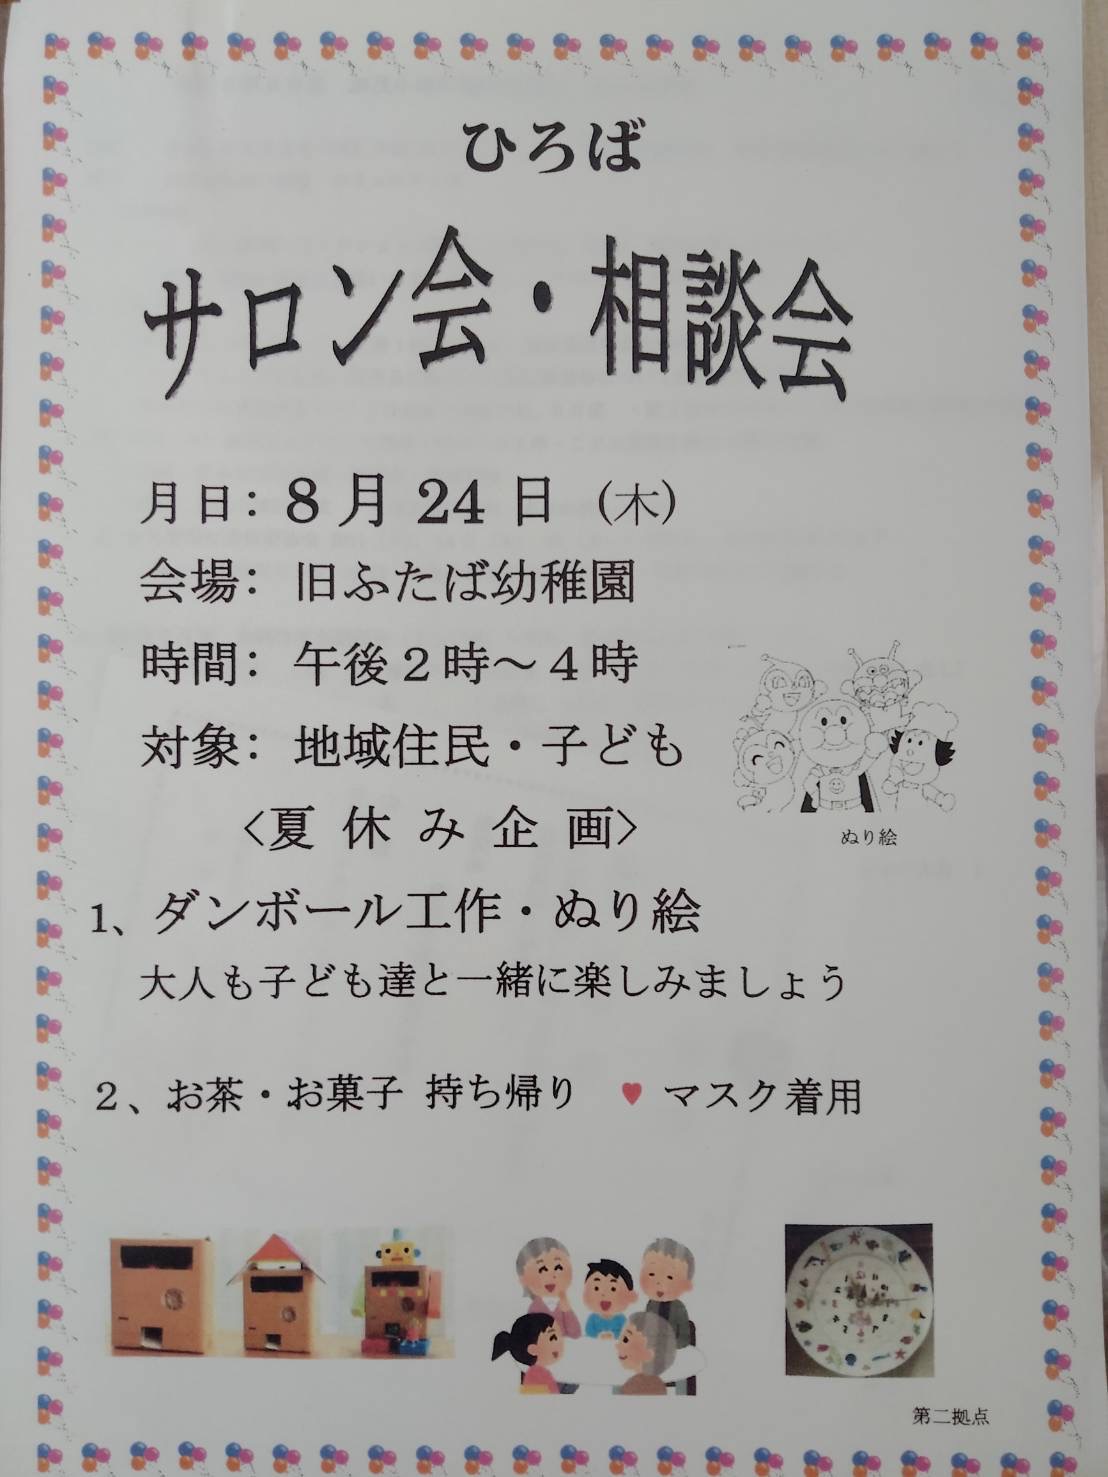 ひろば
サロン会・相談会
月日：８月 24 日（木）
会場：旧ふたば幼稚園
時間：午後２時～４時
対象：地域住民・子ども
<夏 休 み 企 画>
ぬり絵
1、ダンボール工作・ぬり絵
大人も子ども達と一緒に楽しみましょう
２、お茶・お菓子 持ち帰り ♥ マスク着用
第二拠点